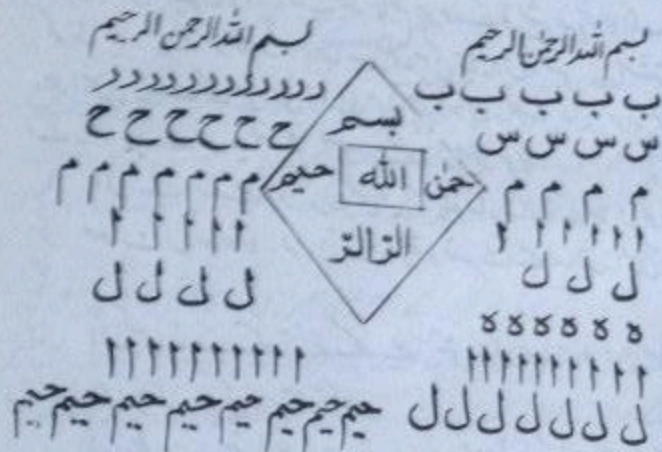 بسم الله الرحمن الرحيم
ب ب ب ب ب
س س س س
م م م م
ا ا ا ا ا ا
ل ل ل
ه ه ه ه ه ه
ا ا ا ا ا ا ا ا ا ا
ل ل ل ل ل ل ل
بسم
حمٰن الله حيم
الرّ الرّ
بسم الله الرحمن الرحيم
ر ر ر ر ر ر ر ر ر ر ر ر ر
ح ح ح ح ح ح
م م م م م م م
ا ا ا ا ا
ل ل ل ل
ا ا ا ا ا ا ا ا ا ا
حيم حيم حيم حيم حيم حيم حيم حيم